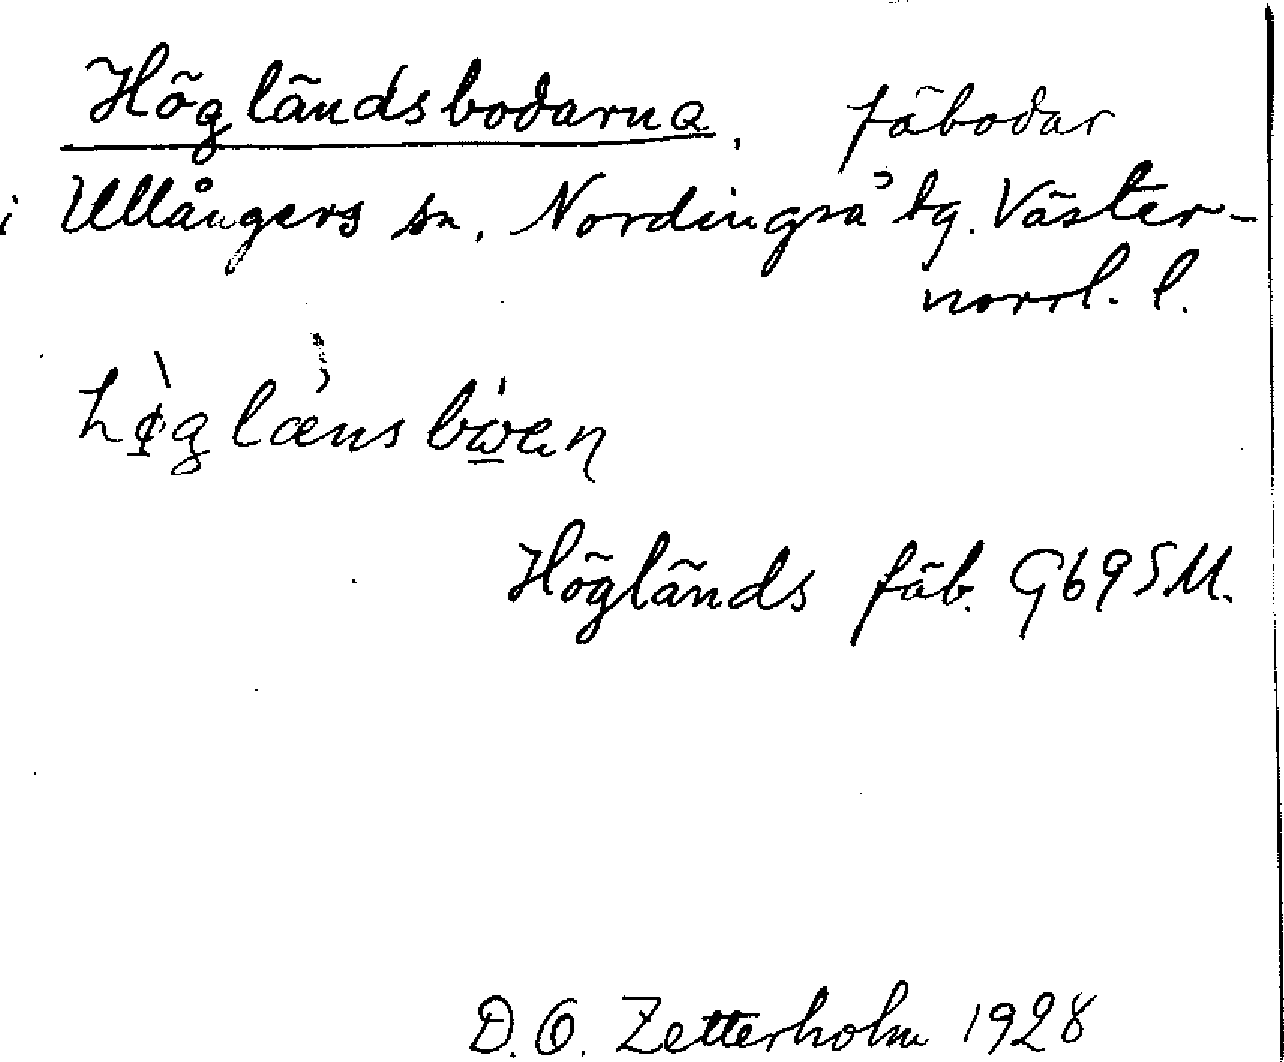 Högländsbodarna, fäbodar
i Ullångers sn, Nordingrå tg. Väster-
norrl. l.
Högländs fäb. G69SM.
D. O. Zetterholm 1928